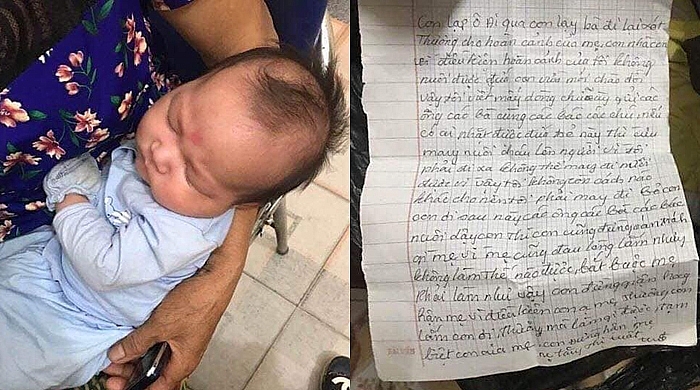 Con lạp ô Di qua con lạy bà đi lại xót
Thương cho hoàn cảnh của mẹ con nhà con
vì điều kiện hoàn cảnh của tôi không
nuôi được đứa con vừa mới chào đời
vậy tôi viết mấy dòng chữ này gửi các
ông các bà cùng các bác các chú nếu
có ai nhặt được đứa trẻ này thì cưu
mang nuôi cháu lớn người vì tôi
phải đi xa không thể mang đi nuôi
được vì vậy tôi không còn cách nào
khác cho nên tôi phải mang đi Bỏ con
con ơi sau này các ông các bà các bác
nuôi dạy con thì con cũng đừng oán trách
gì mẹ vì mẹ cũng đau lòng lắm nhưng
không làm thế nào được bắt buộc mẹ
Phải làm như vậy con đừng giận
hận mẹ vì điều kiện con ạ mẹ thương con
lắm con ơi Thương mà làm gì được
biệt con của mẹ con đừng hận mẹ